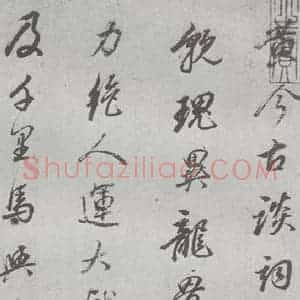 今古談詞
貌瑰異龍
力絕人運大
及千里馬與
Shufaziliao.COM